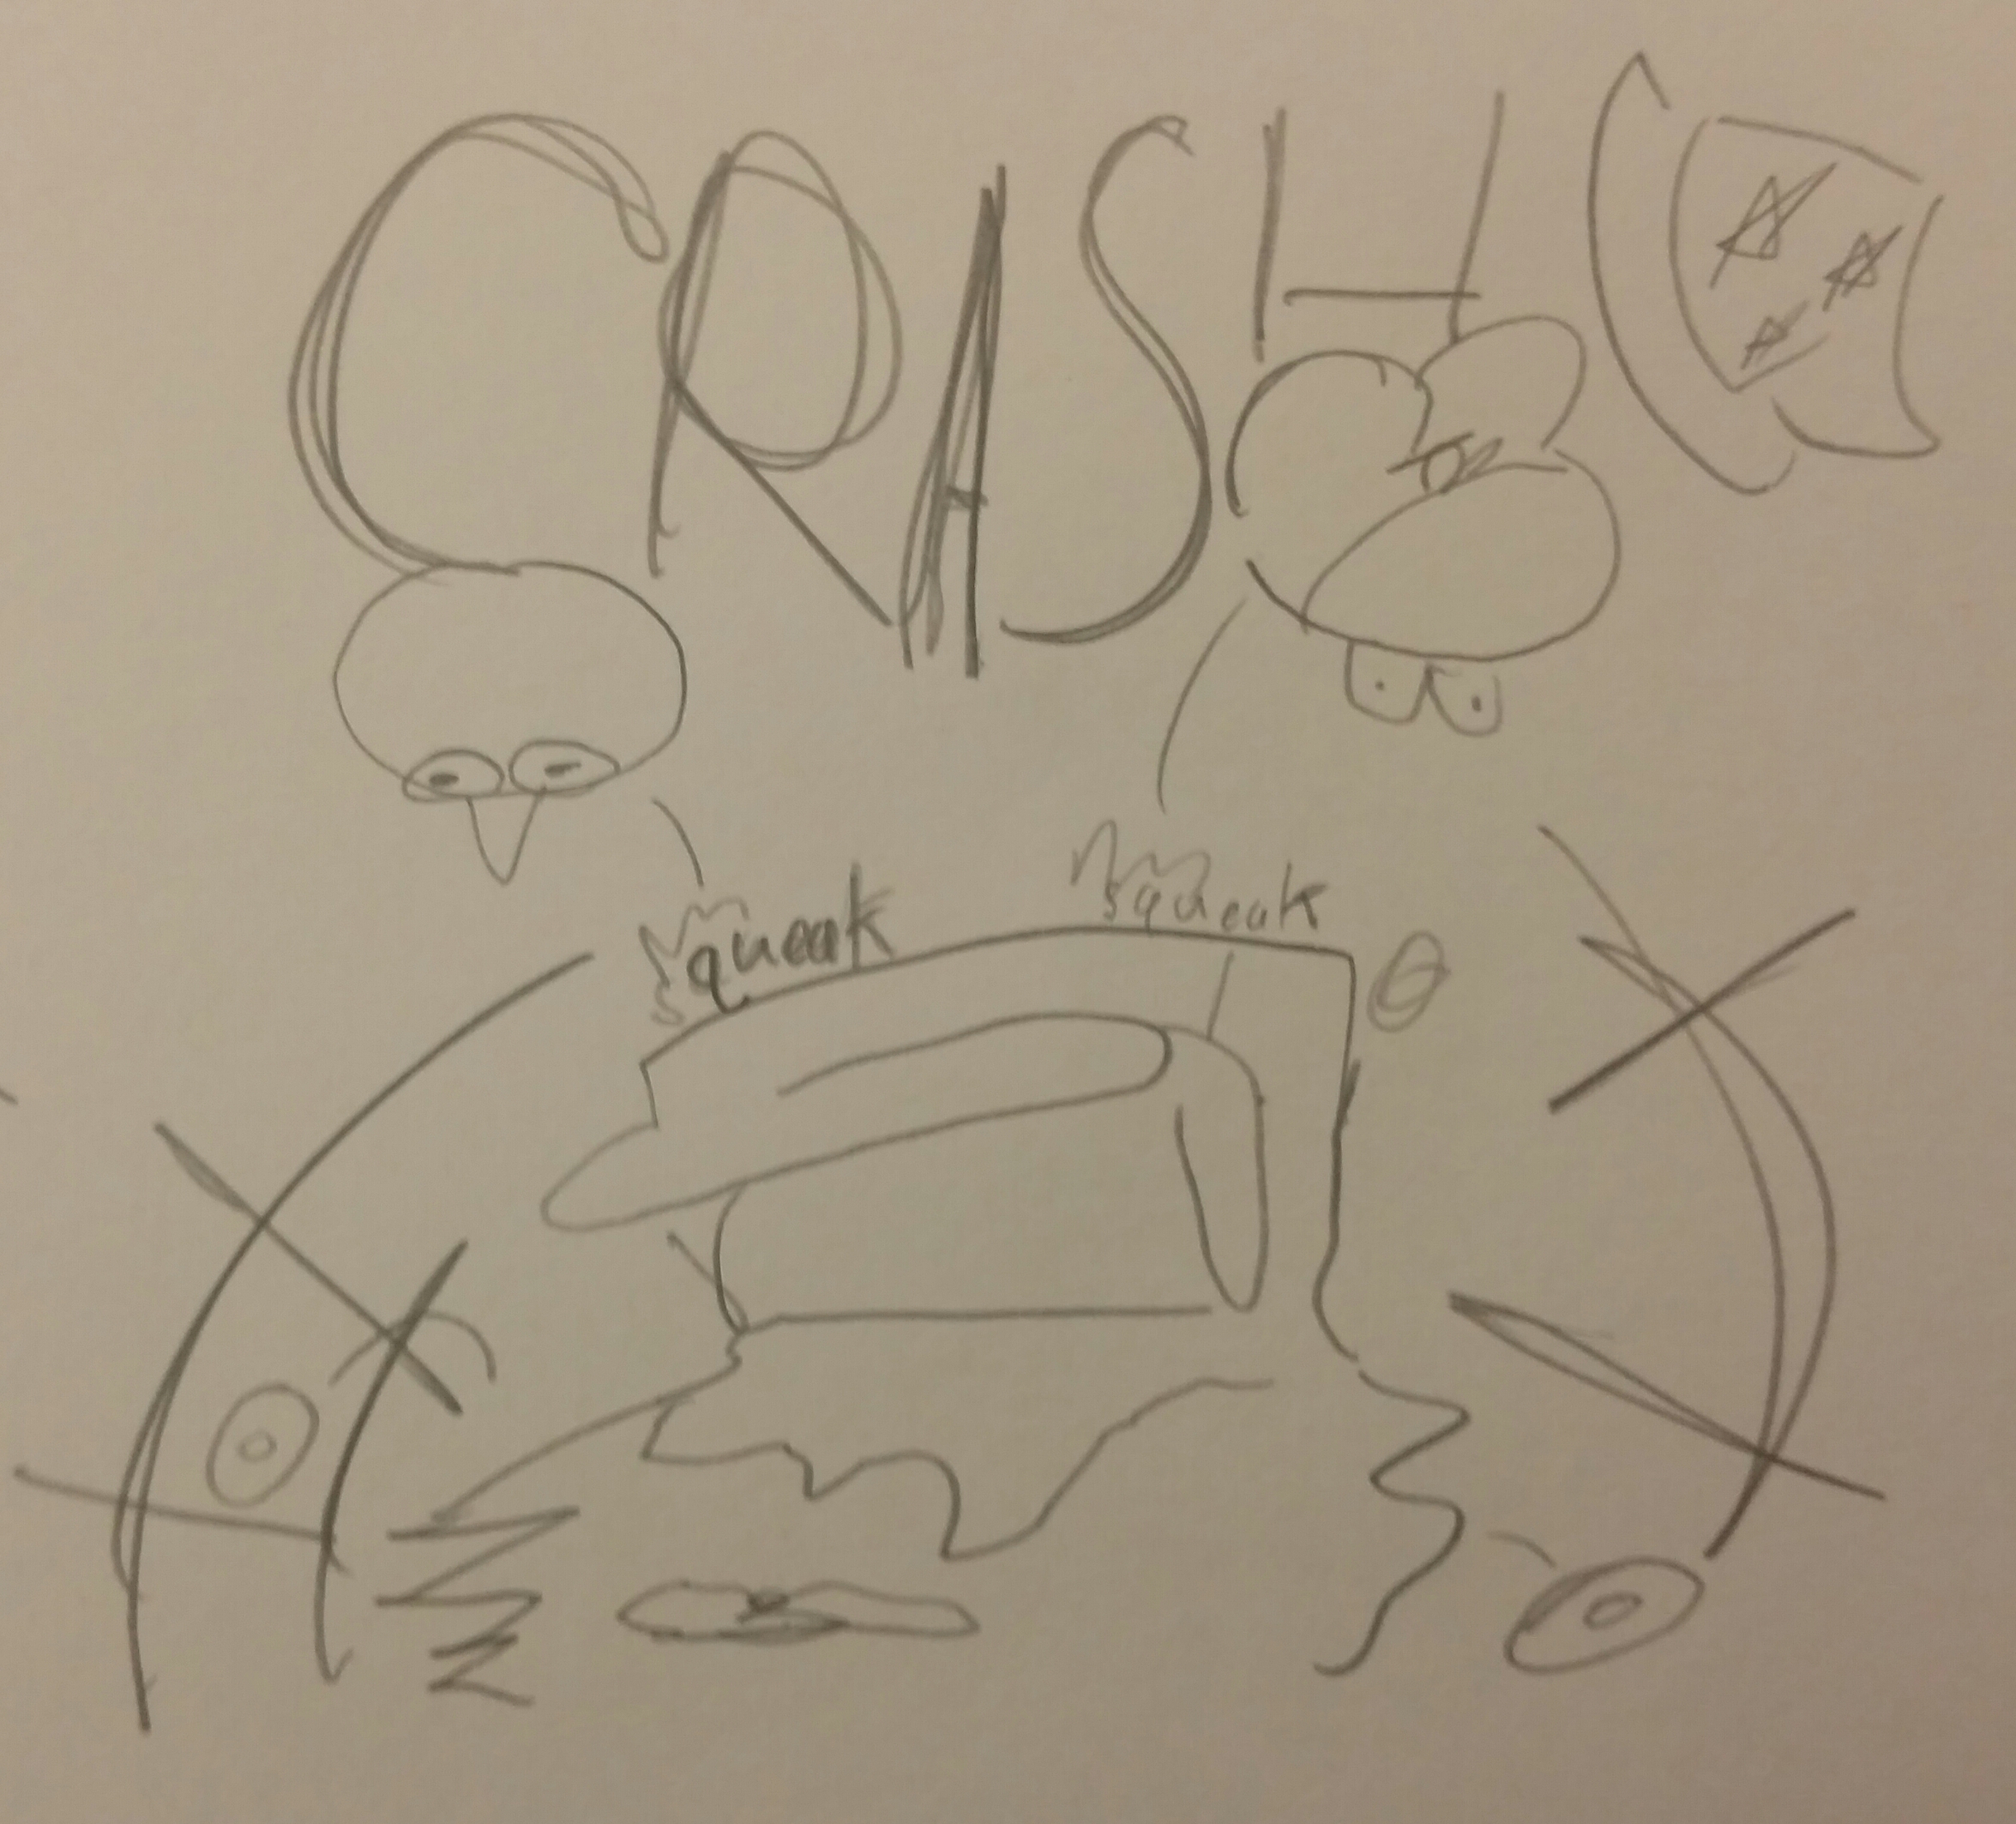 CRASH
squeak
squeak